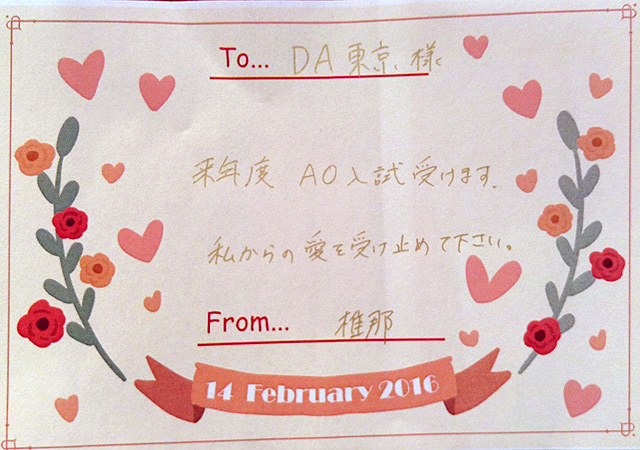 To... DA東京 様
来年度 AO入試受けます。
私からの愛を受け止めて下さい。
From... 椎那
14 February 2016